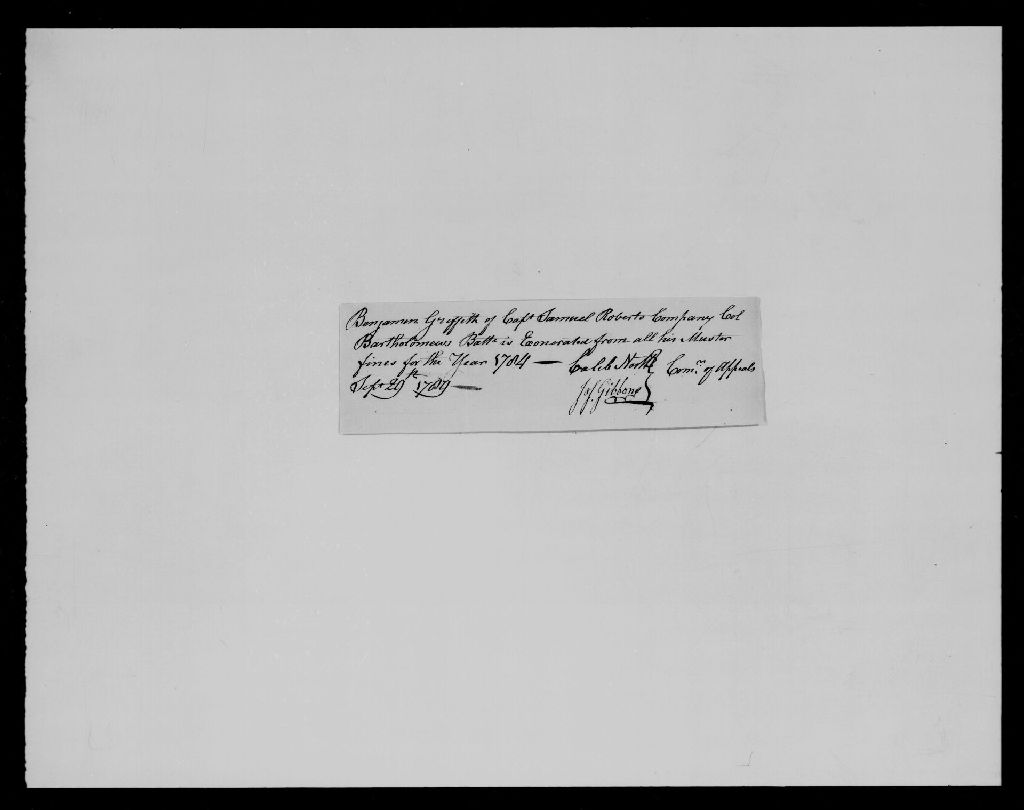 Benjamin Griffith of Capt Samuel Roberts Company Col
Bartholomews Batt is Exonerated from all his Muster
fines for the Year 1784 — Caleb North Comrs of Appeals
Sept 29th 1789 — Js. Gibbons